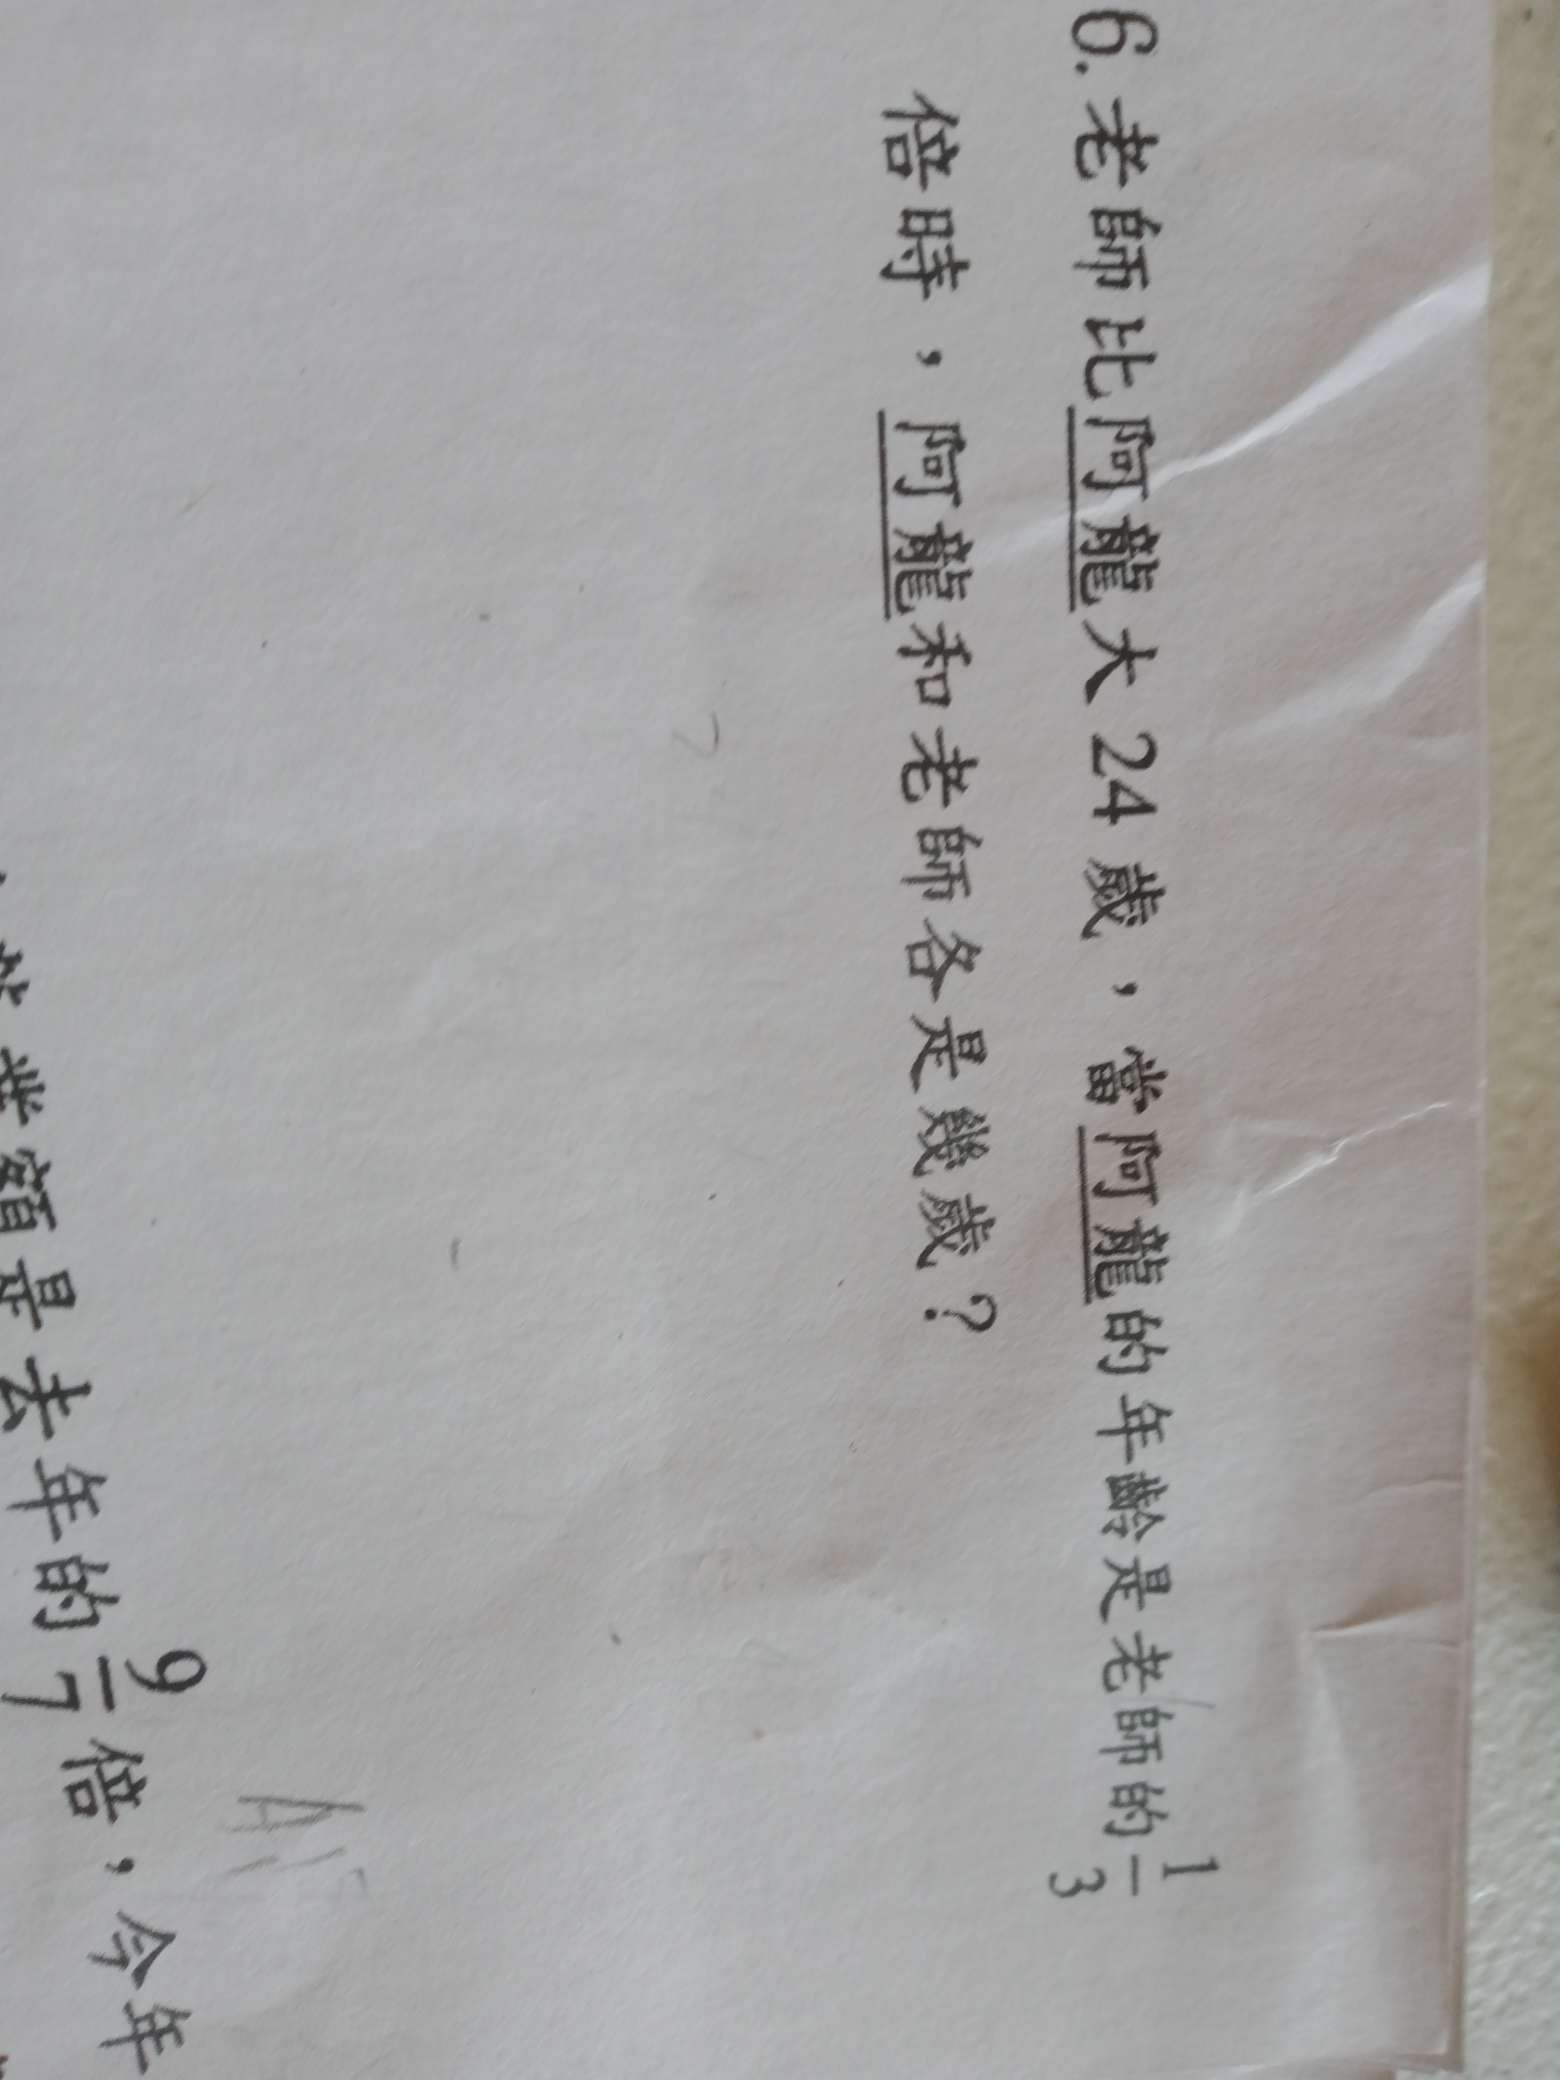 6. 老師比阿龍大 24 歲，當阿龍的年齡是老師的 1/3
倍時，阿龍和老師各是幾歲？
業額是去年的 9/7 倍，今年